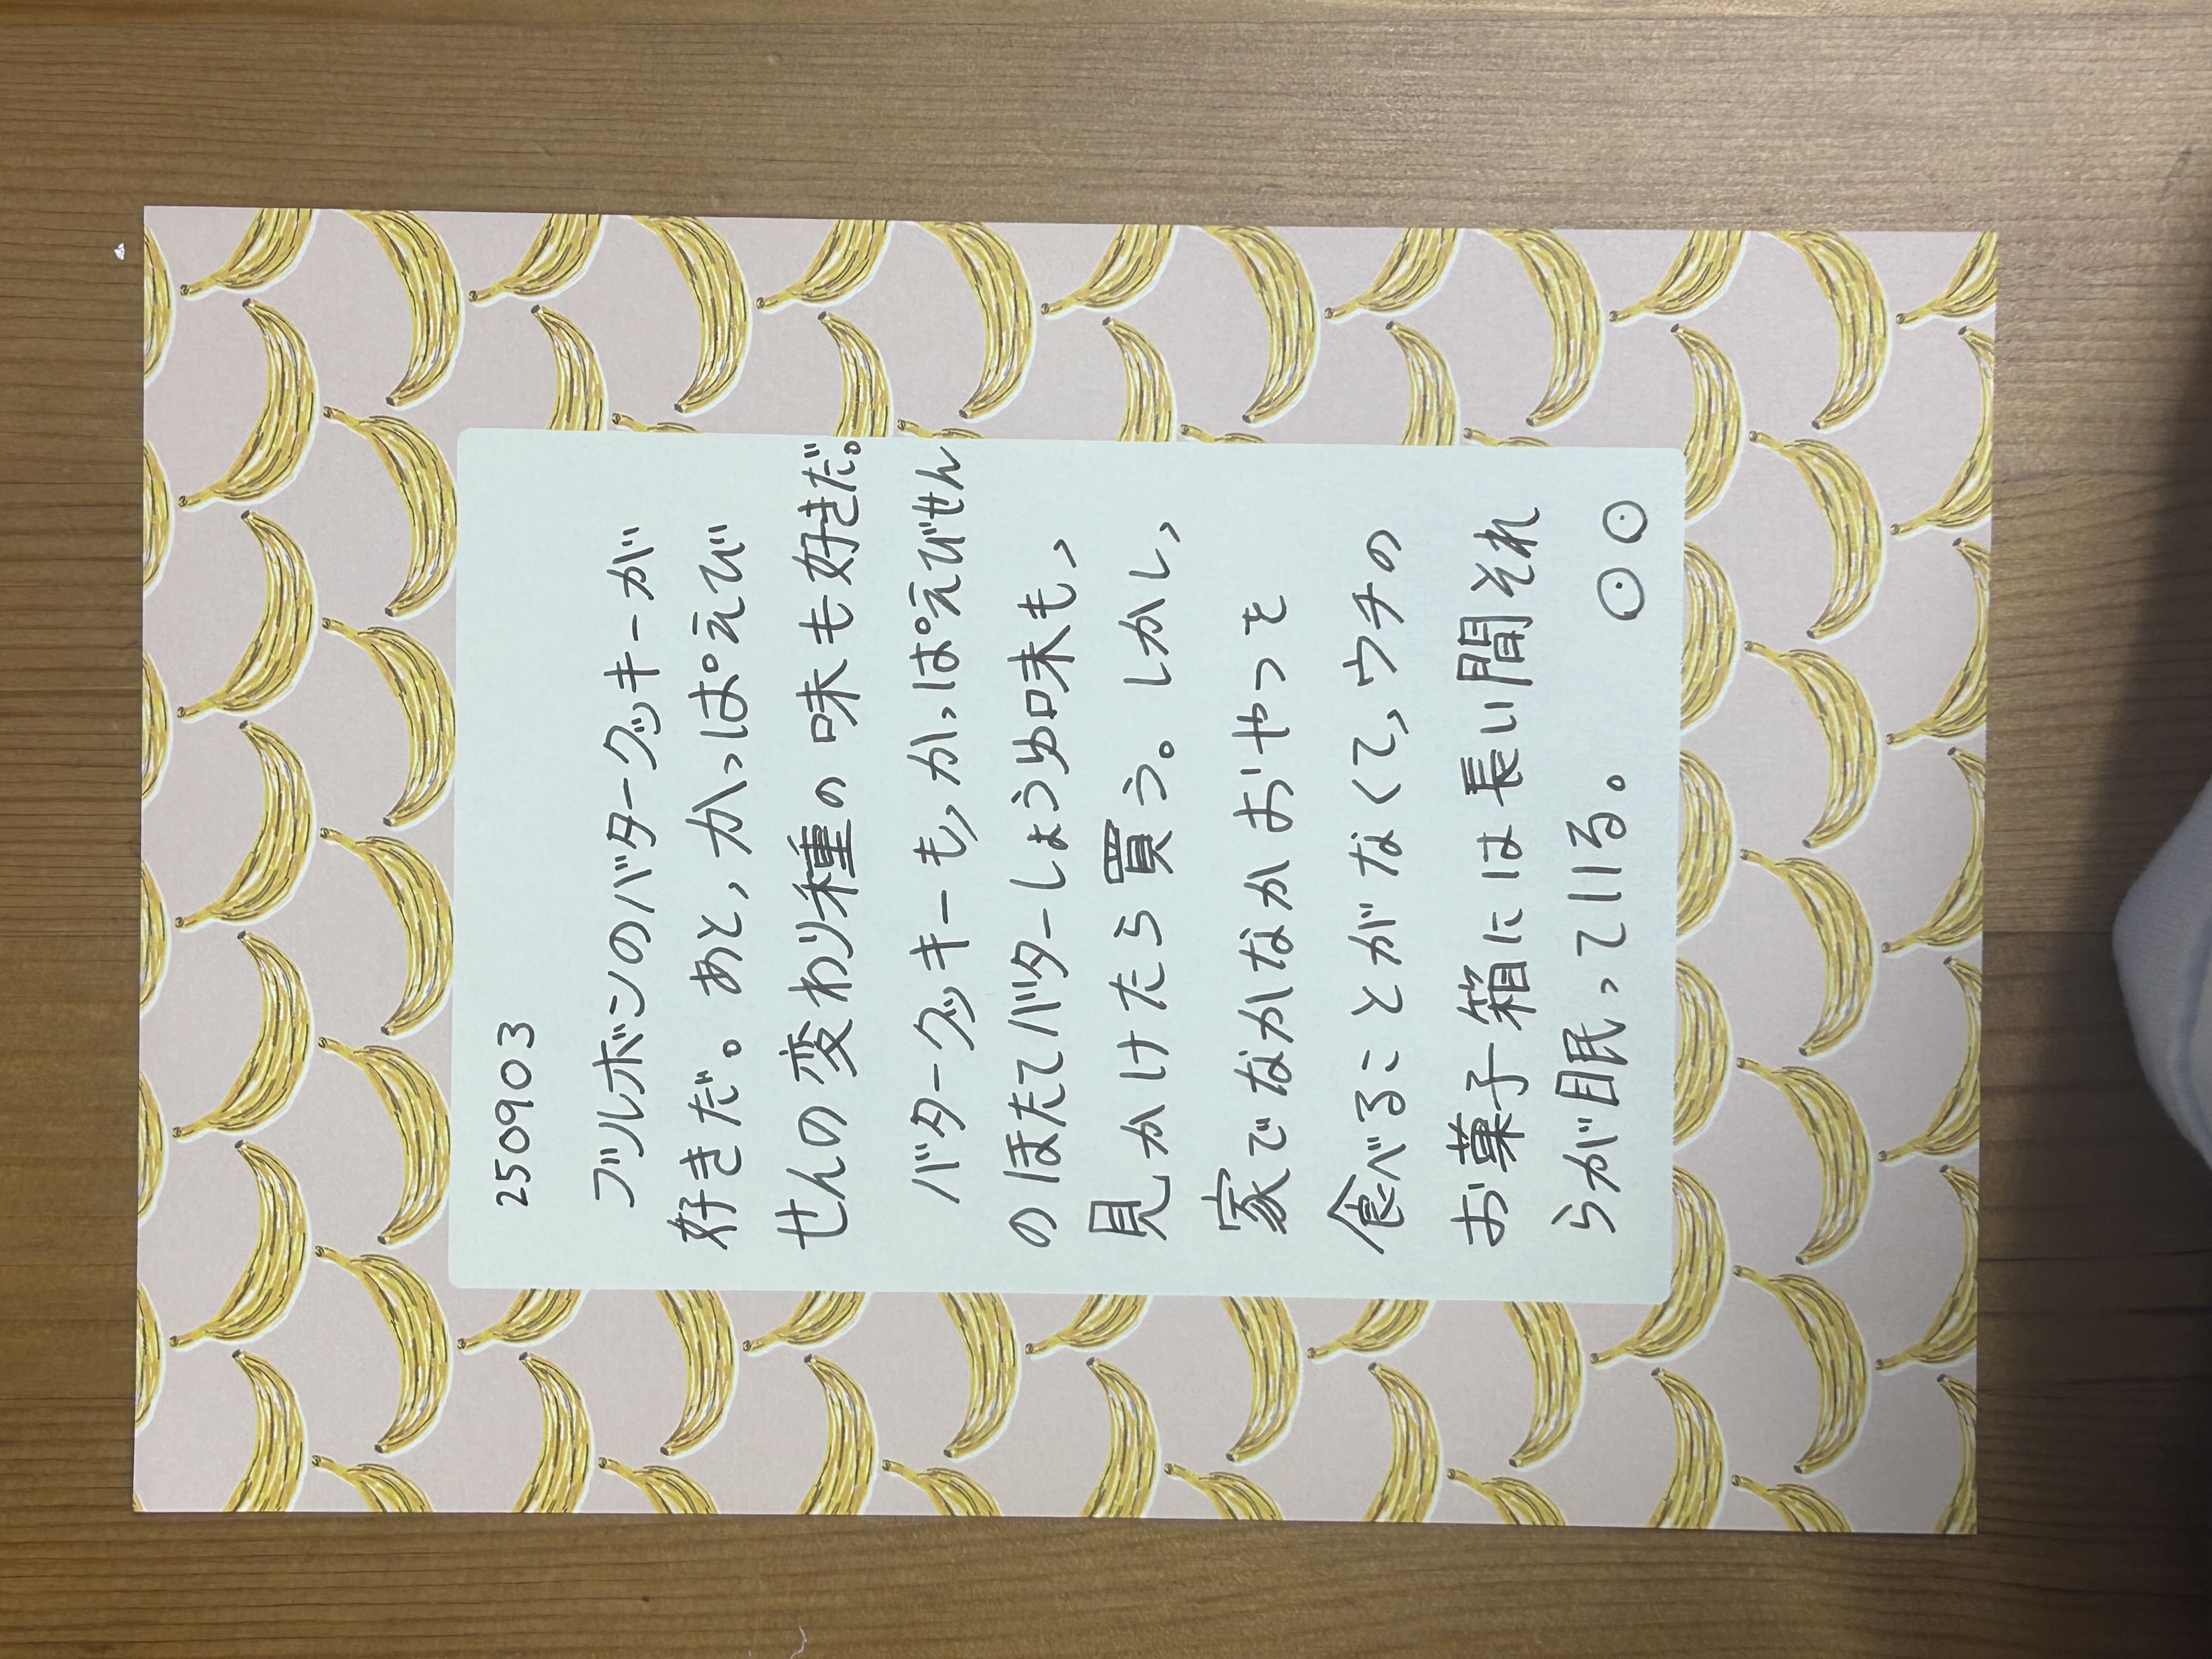 250903
ブルボンのバタークッキーが
好きだ。あと、かっぱえび
せんの変わり種の味も好きだ。
バタークッキーも、かっぱえびせん
のほたてバターしょうゆ味も、
見かけたら買う。しかし、
家でなかなかおやつを
食べることがなくて、ウチの
お菓子箱には長い間それ
らが眠っている。 ⊙⊙